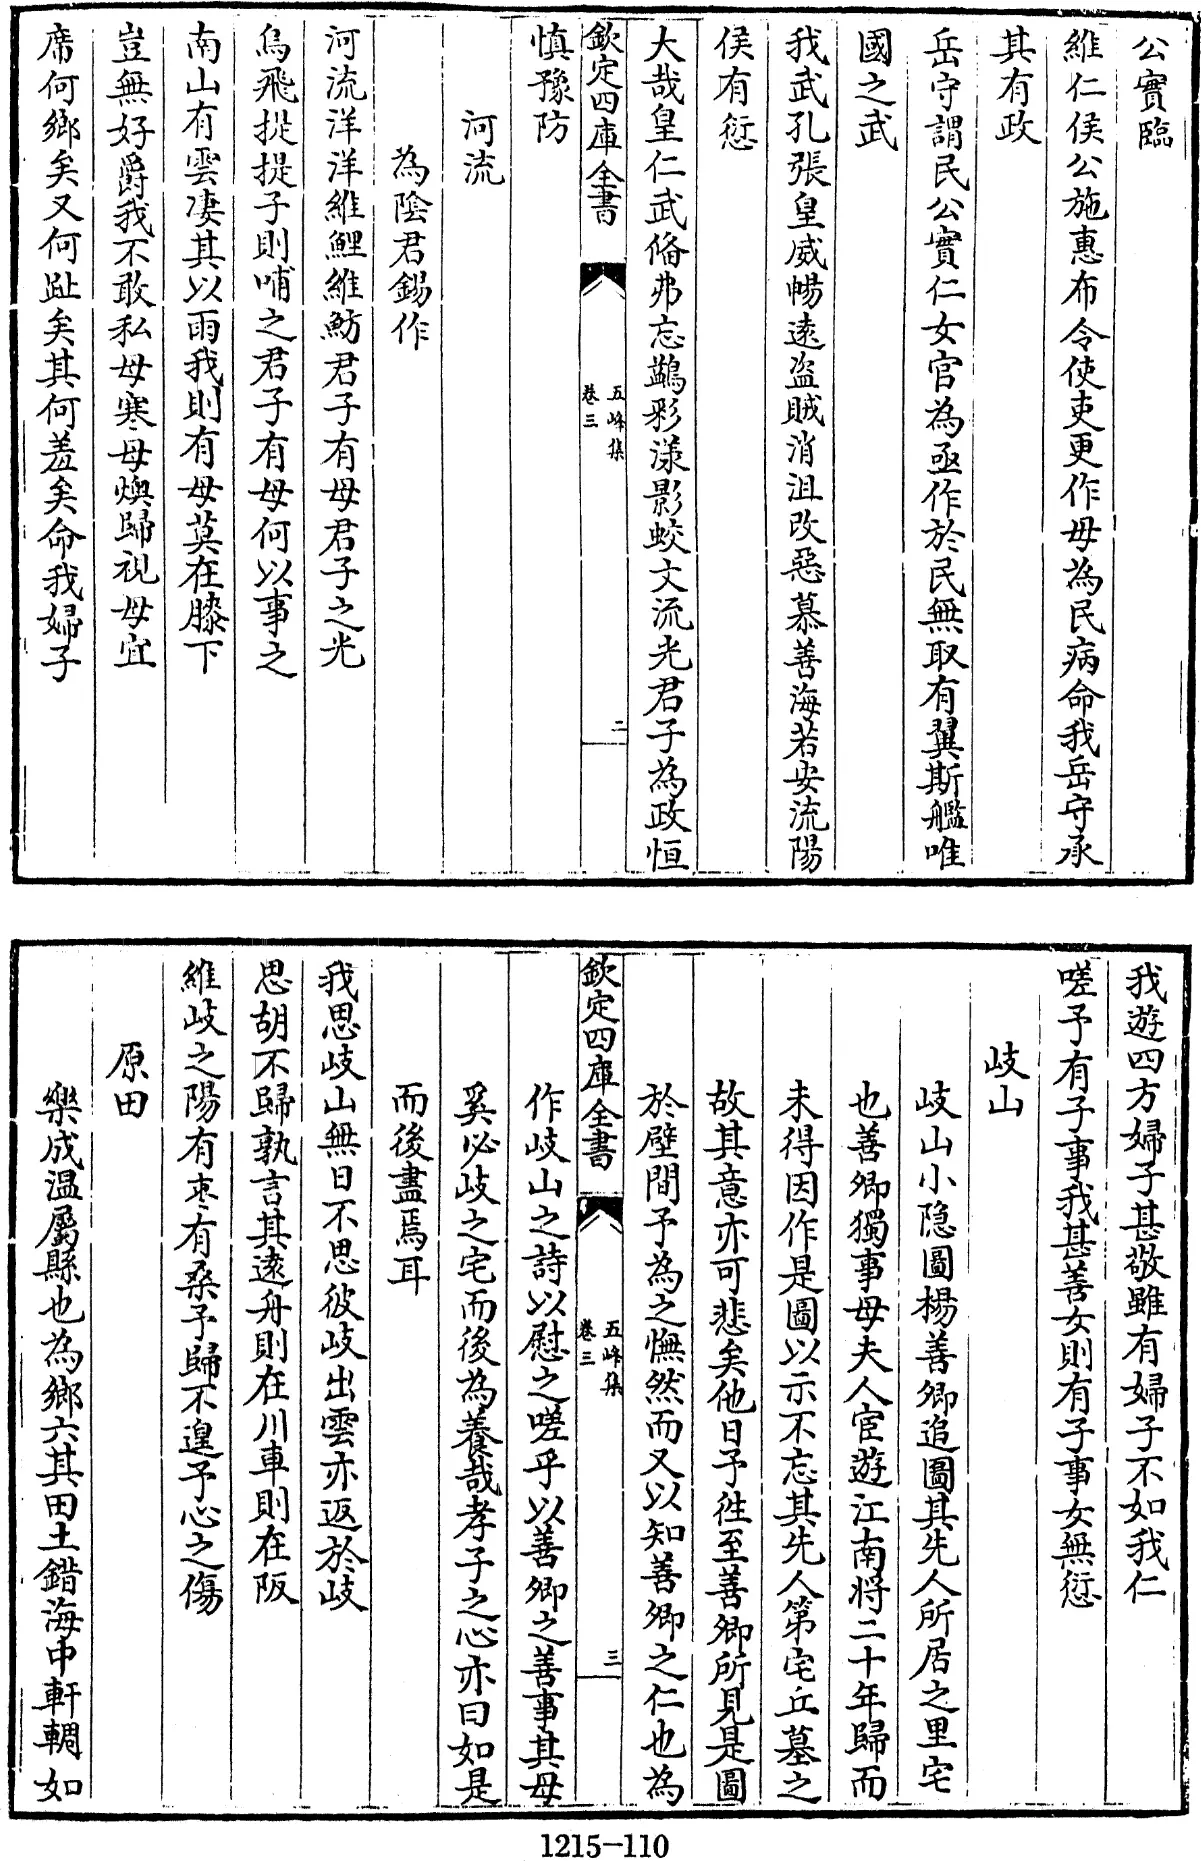 公實臨
維仁侯公施惠布令使吏更作毋為民病命我岳守承
其有政
岳守謂民公實仁女官為亟作於民無取有翼斯艦唯
國之武
我武孔張皇威暢遠盜賊消沮改惡慕善海若安流陽
侯有愆
大哉皇仁武偹弗忘鷁彩漾影蛟文流光君子為政恒
欽定四庫全書
五峰集
卷三
二
慎豫防
河流
為陰君錫作
河流洋洋維鯉維魴君子有母君子之光
烏飛提提子則哺之君子有母何以事之
南山有雲淒其以雨我則有母莫在膝下
豈無好爵我不敢私母寒母燠歸視母宜
席何鄉矣又何趾矣其何羞矣命我婦子
我遊四方婦子甚敬雖有婦子不如我仁
嗟予有子事我甚善女則有子事女無愆
岐山
岐山小隠圖楊善卿追圖其先人所居之里宅
也善卿獨事母夫人宦遊江南將二十年歸而
未得因作是圖以示不忘其先人第宅丘墓之
故其意亦可悲矣他日予徃至善卿所見是圖
於壁間予為之憮然而又以知善卿之仁也為
欽定四庫全書
五峰集
卷三
三
作岐山之詩以慰之嗟乎以善卿之善事其母
奚必岐之宅而後為養哉孝子之心亦曰如是
而後盡焉耳
我思岐山無日不思彼岐出雲亦返於岐
思胡不歸孰言其遠舟則在川車則在阪
維岐之陽有棗有桑予歸不遑予心之傷
原田
樂成温屬縣也為鄉六其田土錯海中軒輖如
1215-110